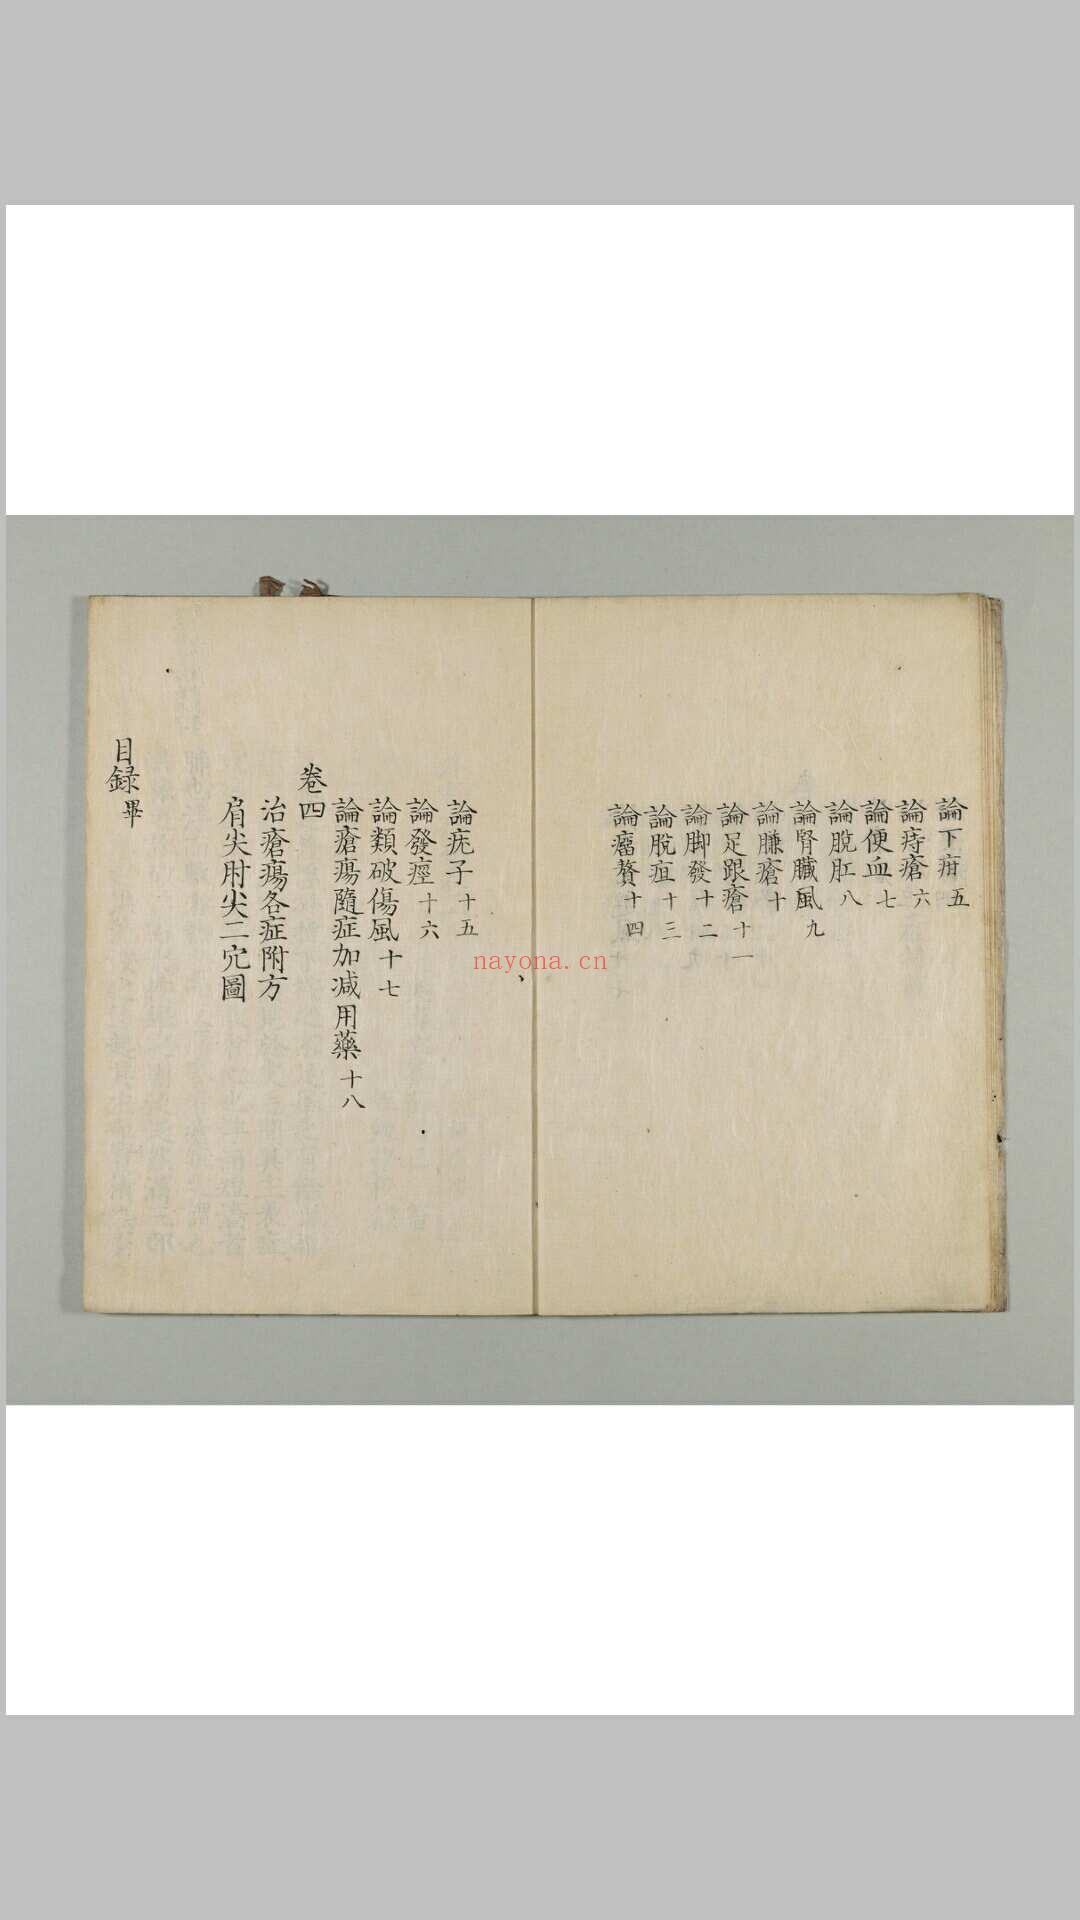 論下疳五
論痔瘡六
論便血七
論脫肛八
論腎臟風九
論臁瘡十
論足跟瘡十一
論脚發十二
論脫疽十三
論瘤贅十四
論疣子十五
論發痙十六
論類破傷風十七
論瘡瘍隨症加減用藥十八
卷四
治瘡瘍各症附方
肩尖肘尖二穴圖
目録畢
nayona.cn